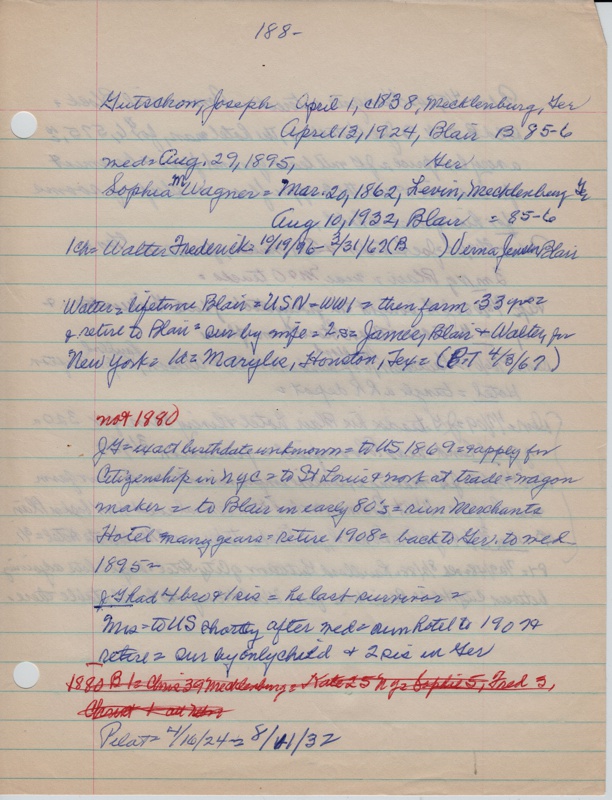 188-
Gutschow, Joseph April 1, c1838, Mecklenburg, Ger
April 13, 1924, Blair B 85-6
med = Aug. 29, 1895, Ger
Sophia M Wagner = Mar. 20, 1862, Levin, Mecklenburg Ge
Aug. 10, 1932, Blair = 85-6
1ch = Walter Frederick = 10/19/96 - 3/31/67 (B ) Verna Jensen Blair
Walter = lifetime Blair = USN = WW1 = then farm = 33 yrs =
& retire to Blair = sur by wife = 2s = James, Blair + Walter, Jr
New York = 1d = Marylee, Houston, Tex = (B.T 4/3/67)
not 1880)
JG = exact birthdate unknown = to US 1869 = & apply for
Citizenship in NYC = to St Louis & work at trade = wagon
maker = to Blair in early 80's = run Merchants
Hotel many years = retire 1908 = back to Ger. to med
1895 =
JG had 4 bro & 1 sis = he last survivor =
Mrs = to US shortly after med = run hotel to 190
retire = sur by only child + 2 sis in Ger
1880 B 1 = Chris 39 Mecklenburg = Kate 25 N Y = Sophie 5, Fred 3,
Pilot = 4/16/24 = 8/11/32